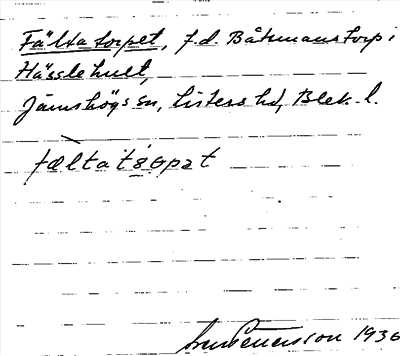 Fälta torpet, f.d. Båtsmanstorp i
Hässlehult,
Jämshögs sn, Listers hd, Blek. l.
1936